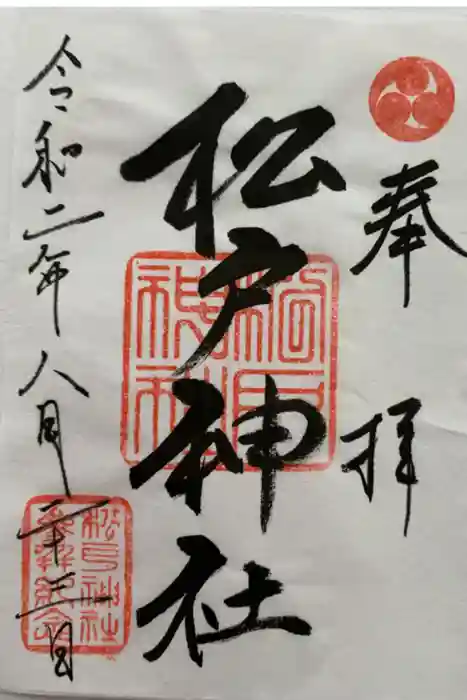 奉拝
松戸神社
令和二年八月二十三日
松戸神社
松戸神社